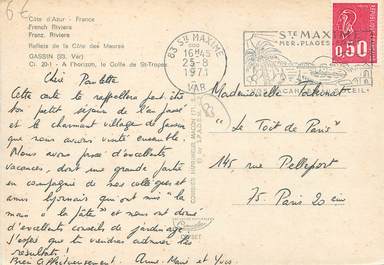 6€
Côte d'Azur - France
French Riviera
Franz. Riviera
Reflets de la Côte des Maures
GASSIN (83. Var)
Ci. 20-1 - A l'horizon, le Golfe de St-Tropez
83 STE MAXIME
16H45
25-8
1971
VAR
STE MAXIME
MER-PLAGES
0,50
Chère Paulette
Cette carte te rappellera peut être
ton petit séjour de l'an passé
et le charmant village de Gassin
que nous avions visité ensemble.
Nous avons passé d'excellentes
vacances, dont une grande partie
en compagnie de nos collègues et
amis lyonnais qui ont mis "la
main à la pâte" et nous ont donné
d'excellents conseils de jardinage
J'espère que tu viendras admirer les
résultats !
Bien affectueusement. Anne-Marie et Yves.
Mademoiselle
"Le Toit de Paris"
145, rue Pelleport
75. Paris 20 eme